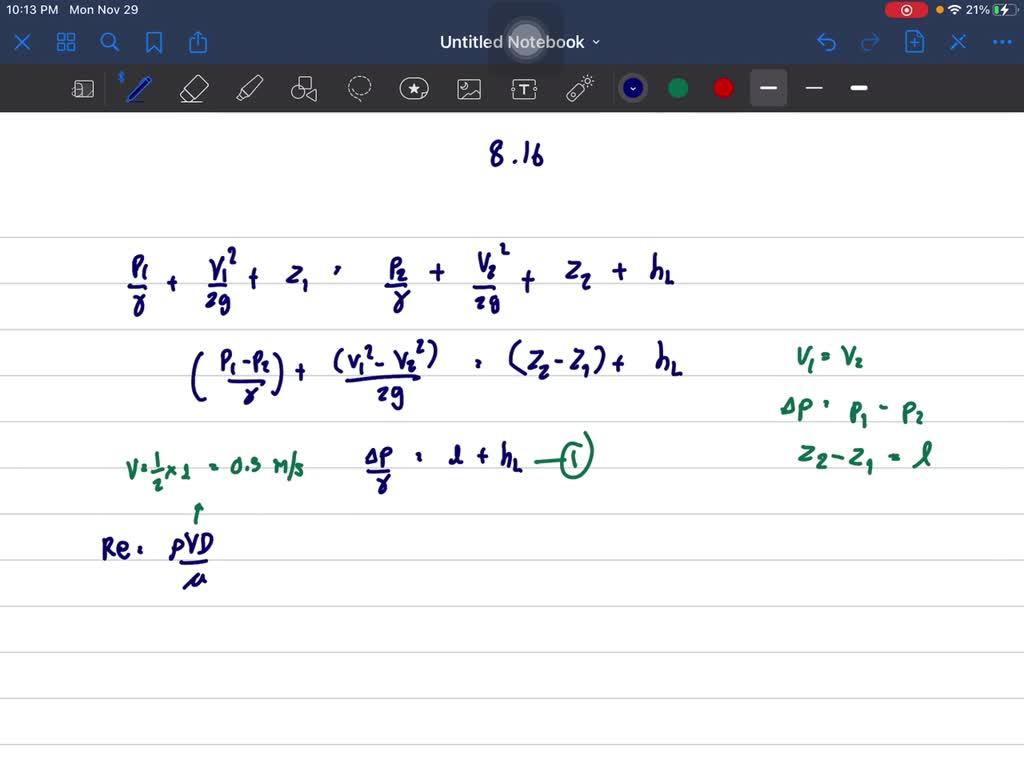 10:13 PM Mon Nov 29
21%
Untitled Notebook
8.16
P1/γ + V1²/2g + Z1 = P2/γ + V2²/2g + Z2 + hL
(P1-P2/γ) + (V1² - V2²)/2g = (Z2 - Z1) + hL
V1 = V2
ΔP = P1 - P2
Z2 - Z1 = l
V = 1/2 x 1 = 0.5 M/s
ΔP/γ = l + hL — ①
Re = ρVD/μ